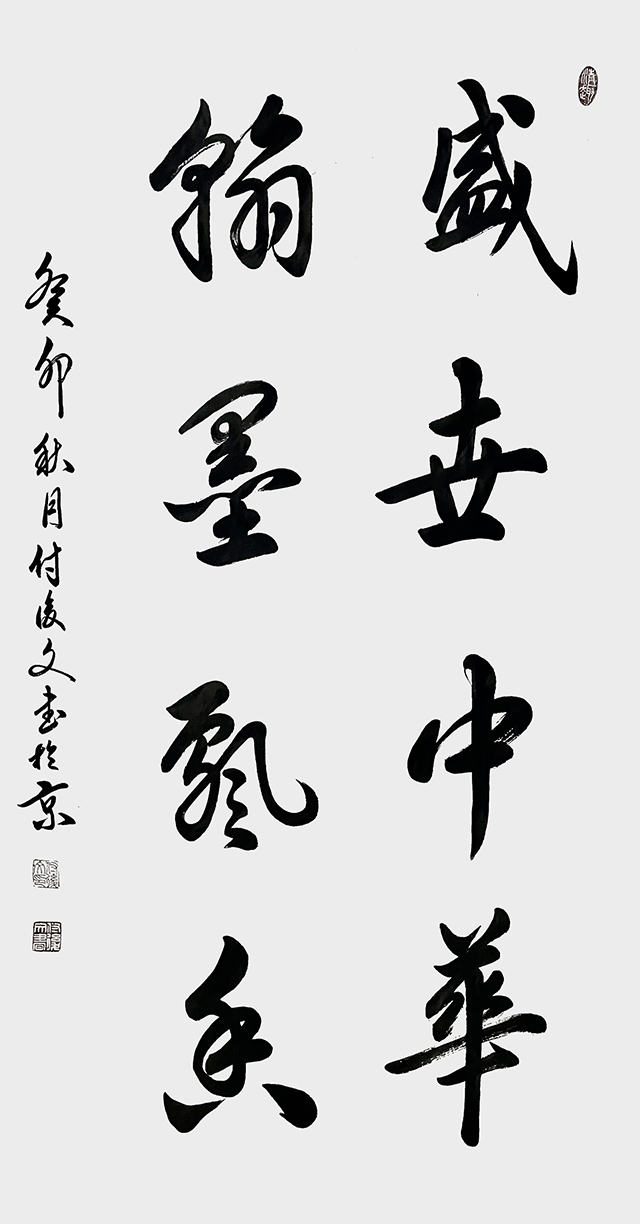 盛世中華
翰墨飄香
癸卯秋月付後文書於京